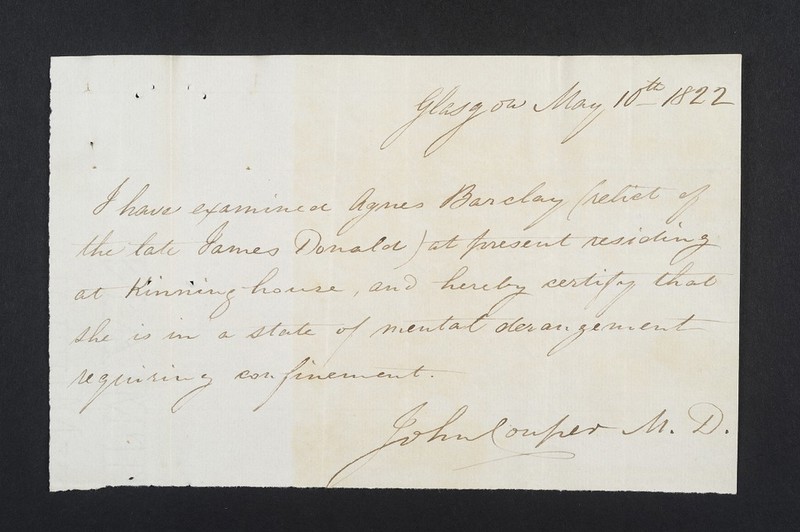 Glasgow May 10th 1822
I have examined Agnes Barclay (relict of
the late James Donald) at present residing
at Kinninghouse, and hereby certify that
she is in a state of mental derangement
requiring confinement.
John Couper M. D.